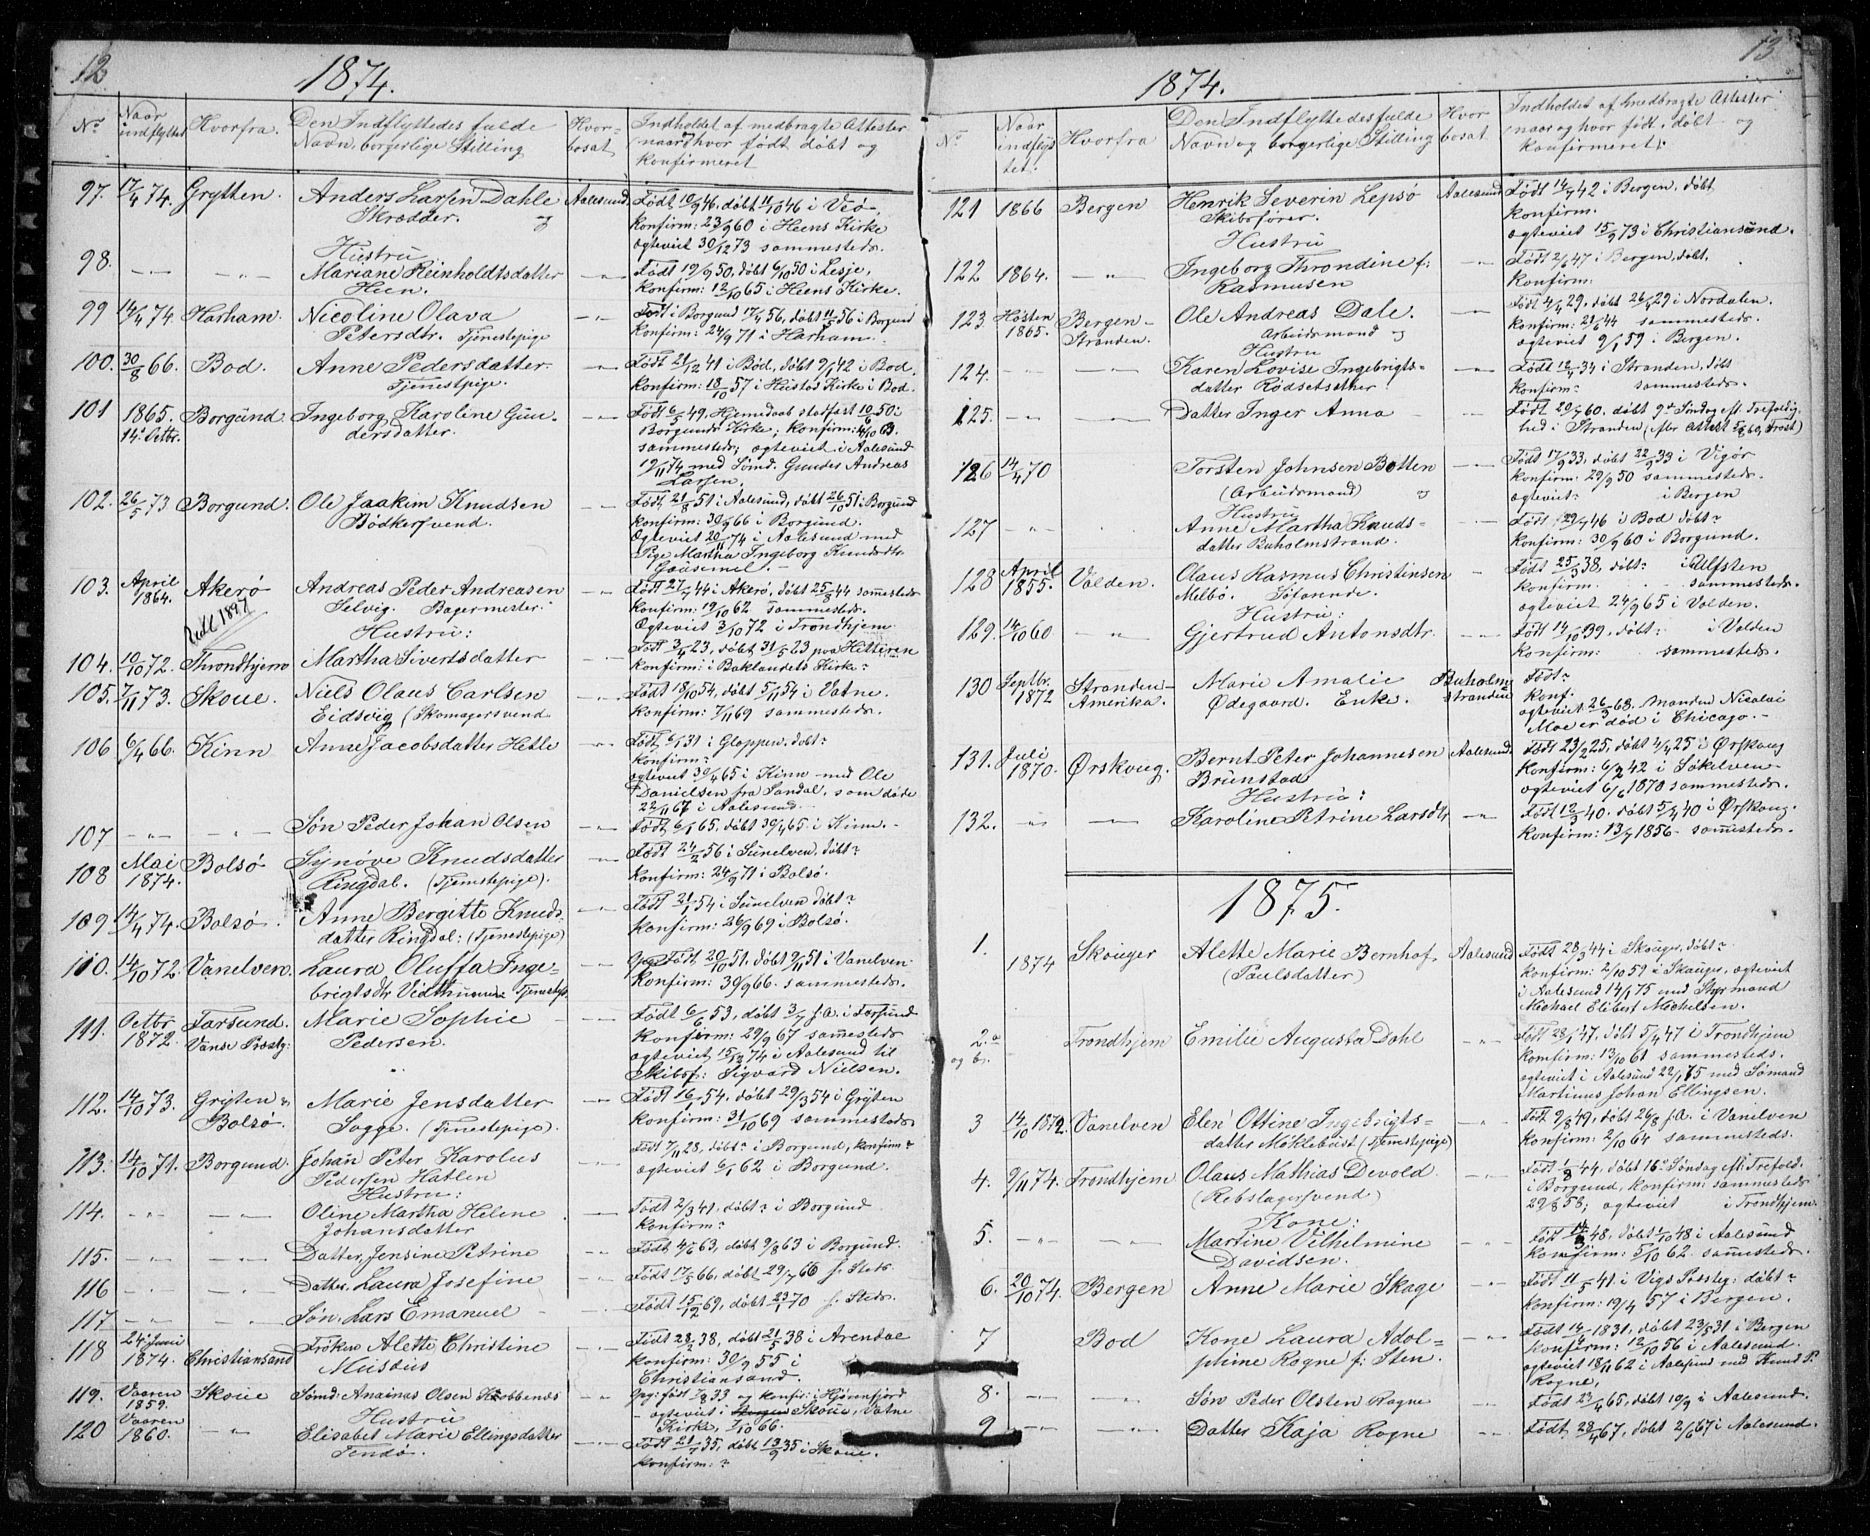 12
1874.
Nr
Naar indflyttet
Hvorfra.
Den Indflyttedes fulde
Navn, borgerlige Stilling
Hvor-
bosat
Indholdet af medbragte Attester
(naar & hvor født døbt og
konfirmeret
97. 17/4 74. Grytten. Anders Larsen Dahle Aalesund. Født 10/9 46, døbt 11/10 46 i Veø
Skrædder. og konfirm: 23/9 60 i Heens Kirke
ægteviet 30/12 73 sammesteds.
Hustru
98. Mariane Reinholdtsdatter Født 19/9 50, døbt 6/10 50 i Lesje,
Heen. Konfirm: 12/10 65 i Heens Kirke.
99 14/4 74 Harham. Nicoline Olava Født i Borgund 17/4 56, døbt 11/5 56 i Borgund
Petersdtr. Tjenestepige Konfirm: 24/9 71 i Harham.
100. 30/8 66. Bod. Anne Pedersdatter Født 21/12 41 i Bod, døbt 9/1 42 i Bod.
Tjenestpige. Konfirm: 18/10 57 i Hustad Kirke i Bod.
101 1865. Borgund. Ingeborg Karoline Gun- Født 6/5 49, Hjemedaab stadfæst 10/6 50 i
14. Octbr. dersdatter. Borgunds Kirke; konfirm: 4/10 63.
sammesteds; ægteviet i Aalesund
19/11 74 med Sømd. Gunder Andreas
Larsen.
102. 26/5 73 Borgund. Ole Joakim Knudsen Født 21/8 51 i Aalesund, døbt 26/10 51 i Borgund
Bødkersvend. konfirm: 30/9 66 i Borgund.
Ægteviet 20/11 74 i Aalesund med
Pige Martha Ingeborg Knudsdtr
103. April 1864. Akerø Andreas Peder Andreasen Født 27/7 44 i Akerø, døbt 25/8 44 sammesteds
Selvig. Bagermester. konfirm: 19/10 62 sammesteds.
1897
Hustru: Ægteviet 3/10 72 i Trondhjem
104. 10/10 72. Throndhjem Martha Sivertsdatter Født 3/4 23, døbt 31/5 23 paa Hitteren
Konfirm: i Baklandets Kirke?
105. 7/11 73. Skoue. Niels Olaus Carlsen Født 18/10 54, døbt 5/11 54 i Vatne.
Eidsvig (Skomagersvend Konfirm: 7/11 69 sammesteds.
106 6/4 66. Kinn Anne Jacobsdatter Hetle Født 6/1 31 i Gloppen, døbt?
konfirm?
ægteviet 30/4 65 i Kinn med Ole
Danielsen fra Søndal, som døde
22/11 67 i Aalesund.
107 Søn Peder Johan Olsen Født 6/1 65, døbt 30/4 65 i Kinn.
108 Mai 1874. Bolsø Synøve Knudsdatter Født 24/2 56 i Sunelven, døbt?
Ringdal. (Tjenestepige). konfirm: 24/9 71 i Bolsø.
109 14/4 74. Bolsø. Anne Bergitte Knuds- Født 21/1 54 i Sunelven døbt?
datter Ringdal: (Tjenestepige) konfirm: 26/9 69 i Bolsø.
110. 14/10 72. Vanelven. Laura Oluffa Inge- Født 20/10 51. døbt 9/11 51 i Vanelven.
brigtsdtr Konfirm: 30/9 66. sammesteds.
111. Octbr 1872. Farsund. Marie Sophie Født 6/6 53, døbt 3/7 s.a. i Farsund
Vanse Præstg: Pedersen. Konfirm: 29/9 67 sammesteds
ægteviet 15/12 74 i Aalesund til
Skibsf: Sigvard Nielsen.
112. 14/10 73. Gryten & Marie Jensdatter Født 16/1 54, døbt 29/3 54 i Gryten
Bolsø. Sogge. (Tjenestepige). konfirm: 31/10 69 sammesteds
113. 14/10 71. Borgund. Johan Peter Karolus Født 7/11 28, døbt? i Borgund, konfirm?
Pedersen Hatlen ægteviet 6/1 62 i Borgund.
Hustru:
114. Oline Martha Helene Født 2/3 41, døbt? i Borgund
Johansdatter konfirm?
115. Datter, Jensine Petrine Født 4/6 63, døbt 9/8 63 i Borgund.
116 Datter. Laura Josefine Født 17/5 66, døbt 29/7 66 s. Steds.
117 Søn, Lars Emanuel Født 15/12 69, døbt 23/1 70 s. Steds.
118 24. Juni 1874. Christiansand Frøken Alette Christine Født 28/2 38, døbt 21/5 38 i Arendal
Musæus konfirm: 30/9 55 i
Christiansand.
119. Vaaren 1859. Skoue Sømd: Olsen født 1/8 33 og konfir: i
ægteviet i Skoue, Vatne
Hustru Kirke, 7/10 66.
120 Vaaren 1860. Elisabet Marie Ellingsdatter Født 21/7 35, døbt 13/9 35 i Skoue.
Tendø. Konfirm:?
13
1874.
Nr.
Naar indflyttet.
Hvorfra
Den Indflyttedes fulde
Navn og borgerlige Stilling
Hvor bosat
Indholdet af medbragte Attester
(naar og hvor født, døbt og
konfirmeret).
121 1866 Bergen Henrik Severin Lepsø Aalesund Født 14/7 42 i Bergen, døbt
Skibsfører. konfirm.
Hustru ægteviet 15/9 73 i Christiansund.
122 1864. Ingeborg Throndine f: Født 2/6 47 i Bergen, døbt.
Rasmusen konfirm:
123. Høsten 1865. Bergen- Ole Andreas Dale. Født 4/4 29, døbt 26/4 29 i Nordalen.
Stranden. Arbeidsmand og Konfirm: 21/6 44 sammesteds.
Hustru ægteviet 9/1 59 i Bergen.
124. Karen Lovise Ingebrigts- Født 12/4 34 i Stranden, døbt
datter Rødsetsæther konfirm: sammesteds.
125. Datter Inger Anna Født 20/7 60. døbt 9de Søndag eft. Trefoldig-
hed i Stranden
126 14/4 70 Torsten Johnsen Botten Født 17/9 33, døbt 22/9 33 i Vigør
(Arbeidsmand) og konfirm: 29/9 50 sammesteds.
Hustru ægteviet: i Bergen
127 Anne Martha Knuds- Født 29/7 46 i Bod døbt?
datter Buholmstrand. konfirm: 30/9 60 i Borgund.
128 April 1855. Volden. Olaus Rasmus Christinsen Født 25/3 38, døbt: i Ulfsten
Melbø. Søfarende. konfirm sammesteds
Hustru: ægteviet 24/9 65 i Volden.
129. 14/10 60 Gjertrud Antonsdtr. Født 14/10 39, døbt: i Volden
Konfirm: sammesteds.
130 Septbr. 1872 Stranden- Marie Amalie Buholm- Født?
Amerika. Ødegaard. Enke. stranden Konf.
ægteviet 26/3 68. Manden Nicolai
Moe er død i Chicago.
131. Juli 1870. Ørskoug. Bernt Peter Johannesen Aalesund. Født 23/2 25, døbt 4/4 25 i Ørskoug
Brunstad Konfirm: 6/2 42 i Søkelven
Hustru: ægteviet 6/6 1870 sammesteds.
132. Karoline Petrine Larsdtr Født 12/3 40. døbt 5/4 40 i Ørskoug.
Konfirm: 13/7 1856. sammesteds.
1875.
1. 1874 Skouger Alette Marie Bernhof. Aalesund Født 28/3 44 i Skouger, døbt?
(Paulsdatter) konfirm: 2/10 59 i Skouger, ægteviet
i Aalesund 14/1 75 med Styrmand
Michael Elibert Michelsen.
2. a og b. Trondhjem Emilie Augusta Dahl Født 28/1 47, døbt 5/4 47 i Trondhjem
Konfirm: 13/10 61 sammesteds.
ægteviet i Aalesund 22/1 75 med Sømand
Martinus Johan Ellingsen.
3 14/10 1872. Vanelven Elen Ottine Ingebrigts- Født 9/8 49, døbt 26/8 s.a. i Vanelven
datter Møklebust (Tjenestepige) Konfirm: 2/10 64 sammesteds.
4. 9/11 74. Trondhjem Olaus Mathias Devold Født 1/9 44, døbt 16de Søndag eft. Trefold.
(Rebslagersvend) i Borgund, konfirm: sammesteds
Kone: 29/8 58; ægteviet i Trondhjem
5. Martine Vilhelmine Født 48, døbt 1/10 48 i Aalesund
Davidsen. Konfirm: 5/10 62 sammesteds.
6. 20/10 74. Bergen Anne Marie Skage Født 11/5 41 i Vigs Præsteg: døbt?
Konfirm: 19/4 57 i Bergen.
7 Bod Kone Laura Adol- Født 14/4 1831, døbt 23/5 31 i Bergen
phine Rogne f: Sten. konfirm: 12/10 56 i Aalesund.
ægteviet 18/11 62 i Aalesund med Knud P.
Rogne.
8. Søn Peder Olsten Rogne Født 23/4 65, døbt 10/9 i Aalesund.
9 Datter Kaja Rogne Født 28/4 67, døbt 2/6 67 i Aalesund.